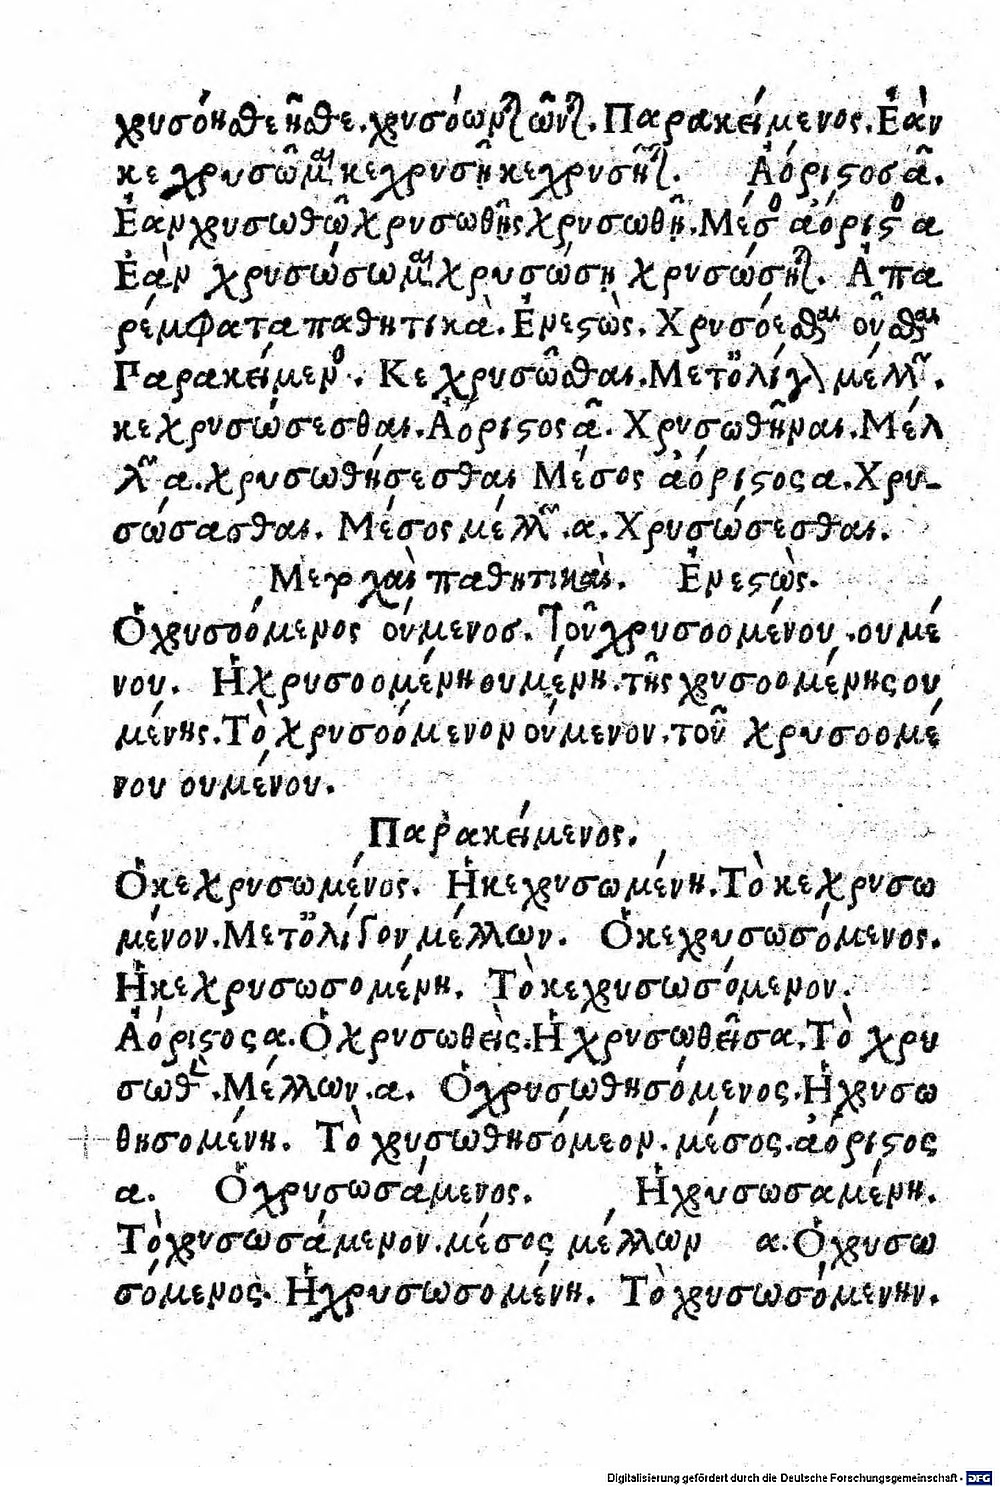 χρυσόησθε ῆσθε. χρυσόωνται ῶνται. Παρακείμενος. Ἐὰν
κεχρυσῶμαι κεχρυσῇ κεχρυσῆται. Ἀόριστος ᾶ.
Ἐὰν χρυσωθῶ χρυσωθῇς χρυσωθῇ. Μέσος ἀόριστος α
Ἐὰν χρυσώσωμαι χρυσώσῃ χρυσώσηται. Ἀπα
ρέμφατα παθητικὰ. Ἐνεστὼς. Χρυσόεσθαι οῦσθαι
Παρακείμενος. Κεχρυσῶσθαι. Μετολίγον μέλλων.
κεχρυσώσεσθαι. Ἀόριστος ᾶ. Χρυσωθῆναι. Μέλ
λων α. χρυσωθήσεσθαι Μέσος ἀόριστος α. Χρυ-
σώσασθαι. Μέσος μέλλων. α. Χρυσώσεσθαι.
Μετοχαὶ παθητικαὶ. Ἐνεστὼς.
Ὁ χρυσοόμενος ούμενοσ. Τοῦ χρυσοομένου. ουμέ
νου. Ἡ χρυσοομένη ουμένη. τῆς χρυσοομένης ου
μένης. Τὸ χρυσοόμενον ούμενον. τοῦ χρυσοομέ
νου ουμένου.
Παρακείμενος.
Ὁ κεχρυσωμένος. Ἡ κεχρυσωμένη. Τὸ κεχρυσω
μένον. Μετολίγον μέλλων. Ὁ κεχρυσωσόμενος.
Ἡ κεχρυσωσομένη. Τὸ κεχρυσωσόμενον.
Ἀόριστος α. Ὁ χρυσωθεὶς. Ἡ χρυσωθεῖσα. Τὸ χρυ
σωθὲν. Μέλλων. α. Ὁ χρυσωθησόμενος. Ἡ χρυσω
θησομένη. Τὸ χρυσωθησόμεον. μέσος. ἀόριστος
α. Ὁ χρυσωσάμενος. Ἡ χρυσωσαμένη.
Τὸ χρυσωσάμενον. μέσος μέλλων α. Ὁ χρυσω
σόμενος. Ἡ χρυσωσομένη. Τὸ χρυσωσόμενην.
Digitalisierung gefördert durch die Deutsche Forschungsgemeinschaft - DFG